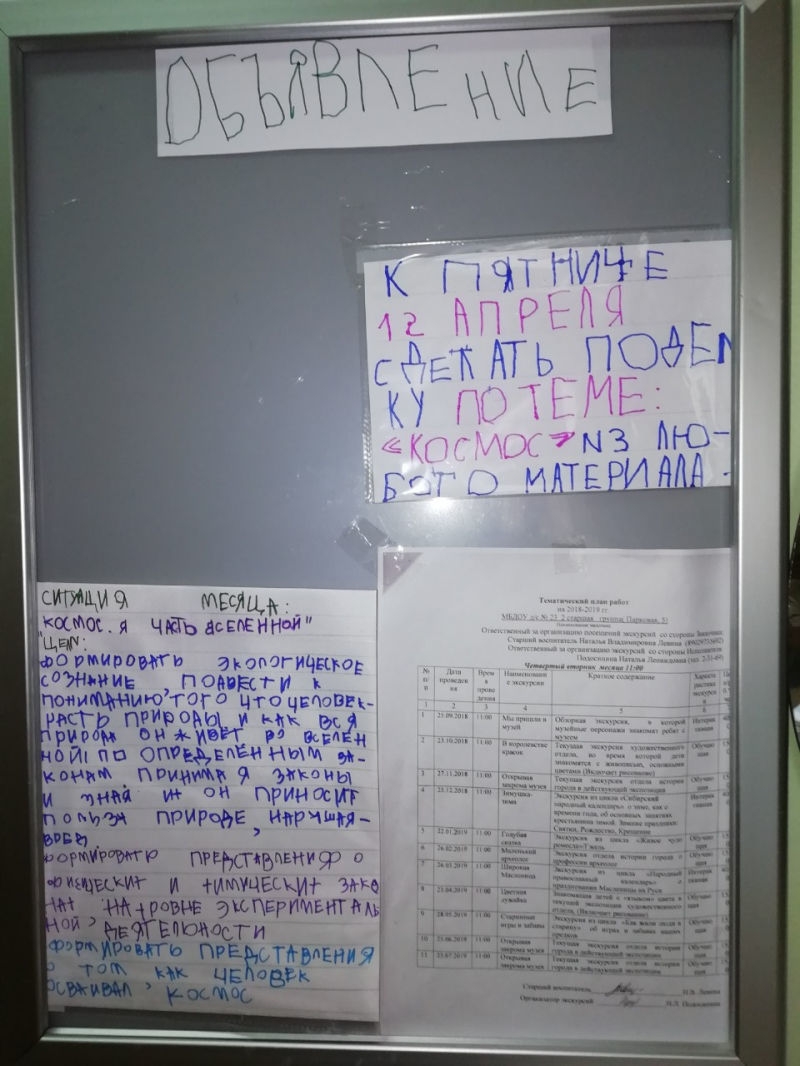 ОБЪЯВЛЕНИЕ
К ПЯТНИЦЕ
12 АПРЕЛЯ
СДЕЛАТЬ ПОДЕЛ
КУ ПО ТЕМЕ:
«КОСМОС» ИЗ ЛЮ-
БОГО МАТЕРИАЛА.
СИТУАЦИЯ МЕСЯЦА:
КОСМОС. Я ЧАСТЬ ВСЕЛЕННОЙ"
"ЦЕЛИ:
ФОРМИРОВАТЬ ЭКОЛОГИЧЕСКОЕ
СОЗНАНИЕ ПОДВЕСТИ К
ПОНИМАНИЮ, ТОГО ЧТО ЧЕЛОВЕК-
ЧАСТЬ ПРИРОДЫ, И КАК ВСЯ
ПРИРОДА ОН ЖИВЁТ ВО ВСЕЛЕН
НОЙ ПО ОПРЕДЕЛЁННЫМ ЗА-
КОНАМ ПРИНИМАЯ ЗАКОНЫ
И ЗНАЯ ИХ ОН ПРИНОСИТ
ПОЛЬЗУ ПРИРОДЕ, НАРУШАЯ-
ВРЕД
ФОРМИРОВАТЬ ПРЕДСТАВЛЕНИЯ О
ФИЗИЧЕСКИХ И ХИМИЧЕСКИХ ЗАКО
НАХ НА УРОВНЕ ЭКСПЕРИМЕНТАЛЬ
НОЙ ДЕЯТЕЛЬНОСТИ
ФОРМИРОВАТЬ ПРЕДСТАВЛЕНИЯ
О ТОМ КАК ЧЕЛОВЕК
ОСВАИВАЛ КОСМОС
Тематический план работ
на 2018-2019 гг.
МБДОУ д/с № 23 2 старшая группа( Парковая, 5)
Ответственный за организацию посещений экскурсий со стороны Заказчика:
Старший воспитатель Наталья Владимировна Левина
Ответственный за организацию экскурсий со стороны Исполнителя
Подосинина Наталья Леонидовна (тел. 2-31-69)
Четвертый вторник месяца 11:00
№ п/п Дата проведения Время проведения Наименование экскурсии Краткое содержание
1 2 3 4 5 6
1 25.09.2018 11:00 Мы пришли в музей Обзорная экскурсия, в которой музейные персонажи знакомят ребят с музеем
2 23.10.2018 11:00 В королевстве красок Текущая экскурсия художественного отдела, во время которой дети знакомятся с живописью, основными цветами (Включает рисование)
3 27.11.2018 11:00 Открывая закрома музея Текущая экскурсия отдела истории города в действующей экспозиции
4 25.12.2018 11:00 Зимушка-зима Экскурсия из цикла «Сибирский народный календарь» о зиме, как о времени года, об основных занятиях крестьянина зимой. Зимние праздники: Святки, Рождество, Крещение
5 22.01.2019 11:00 Голубая сказка Экскурсия из цикла «Живое чудо ремесла» Гжель
6 26.02.2019 11:00 Маленький археолог Экскурсия отдела истории города о профессии археолог
7 26.03.2019 11:00 Широкая Масленица Экскурсия из цикла «Народный православный календарь» о праздновании Масленицы на Руси
8 23.04.2019 11:00 Цветная лужайка Знакомство детей с «языком» цвета в текущей экспозиции художественного отдела. (Включает рисование)
9 28.05.2019 11:00 Старинные игры и забавы Экскурсия из цикла «Как жили люди в старину» об играх и забавах наших предков
10 25.06.2018 11:00 Открывая закрома музея Текущая экскурсия отдела истории города в действующей экспозиции
11 23.07.2019 11:00 Открывая закрома музея Текущая экскурсия отдела истории города в действующей экспозиции
Старший воспитатель Н.В. Левина
Организатор экскурсий Н.Л. Подосинина